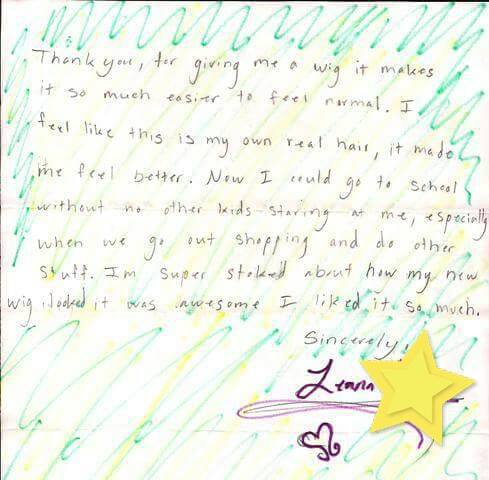 Thank you, for giving me a wig it makes
it so much easier to feel normal. I
feel like this is my own real hair, it made
me feel better. Now I could go to school
without no other kids staring at me, especially
when we go out shopping and do other
stuff. Im super stoked about how my new
wig looked it was awesome I liked it so much.
Sincerely,